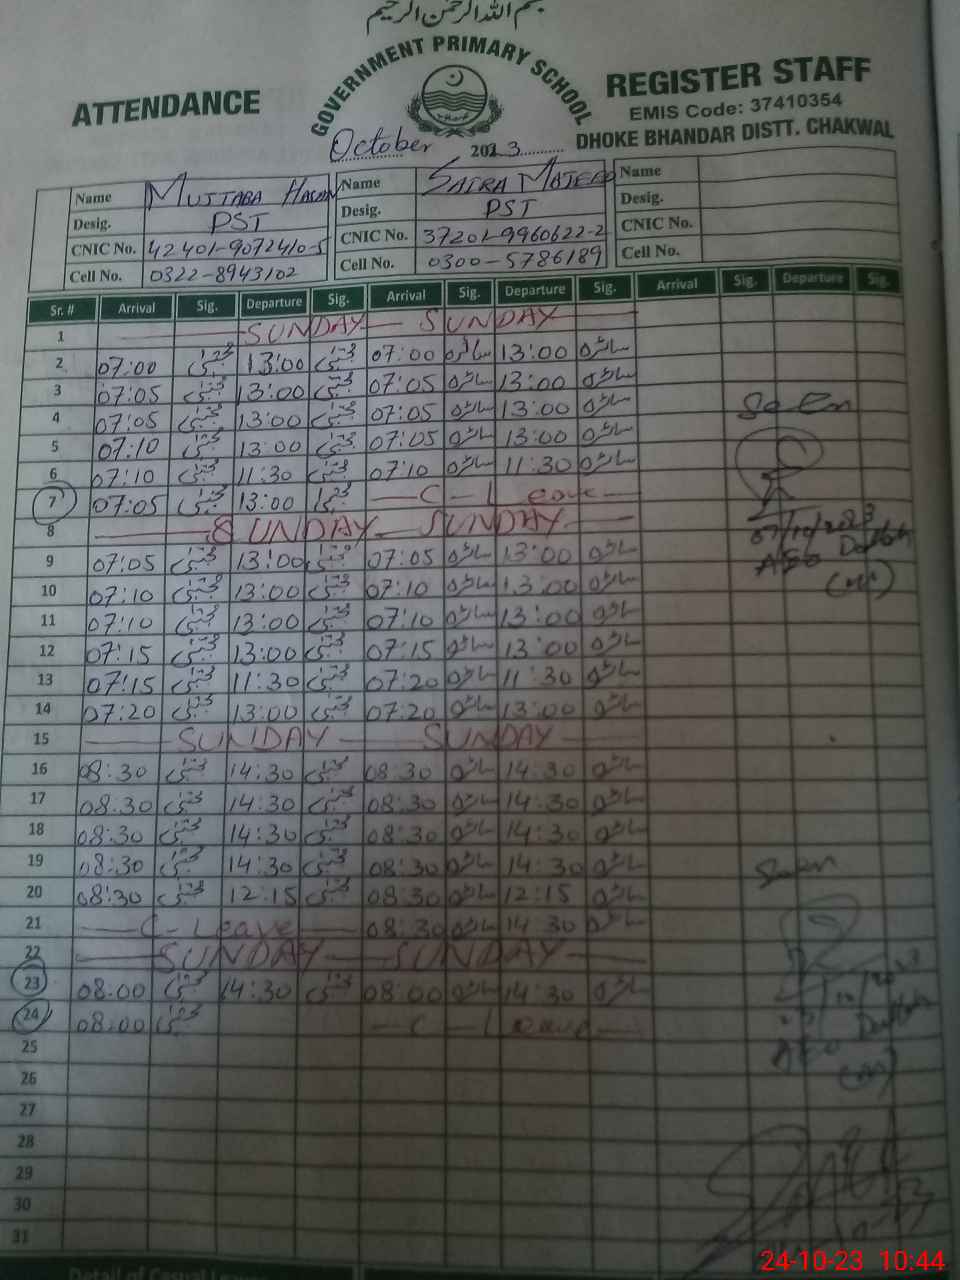 بسم الله الرحمن الرحيم
GOVERNMENT PRIMARY SCHOOL
ATTENDANCE
REGISTER STAFF
EMIS Code: 37410354
DHOKE BHANDAR DISTT. CHAKWAL
October 2023
Name MUJTABA HASAN Name SAIRA MAJEED Name
Desig. PST Desig. PST Desig.
CNIC No. 42401-9072410-5 CNIC No. 37201-9960622-2 CNIC No.
Cell No. 0322-8943102 Cell No. 0300-5786189 Cell No.
Sr. # Arrival Sig. Departure Sig. Arrival Sig. Departure Sig. Arrival Sig. Departure Sig.
1 SUNDAY SUNDAY
2 07:00 مجتبیٰ 13:00 مجتبیٰ 07:00 سائرہ 13:00 سائرہ
3 07:05 مجتبیٰ 13:00 مجتبیٰ 07:05 سائرہ 13:00 سائرہ
4 07:05 مجتبیٰ 13:00 مجتبیٰ 07:05 سائرہ 13:00 سائرہ Seen
5 07:10 مجتبیٰ 13:00 مجتبیٰ 07:05 سائرہ 13:00 سائرہ
6 07:10 مجتبیٰ 11:30 مجتبیٰ 07:10 سائرہ 11:30 سائرہ
7 07:05 مجتبیٰ 13:00 مجتبیٰ C-Leave
8 SUNDAY SUNDAY 07/10/2023
9 07:05 مجتبیٰ 13:00 مجتبیٰ 07:05 سائرہ 13:00 سائرہ AEO
10 07:10 مجتبیٰ 13:00 مجتبیٰ 07:10 سائرہ 13:00 سائرہ
11 07:10 مجتبیٰ 13:00 مجتبیٰ 07:10 سائرہ 13:00 سائرہ
12 07:15 مجتبیٰ 13:00 مجتبیٰ 07:15 سائرہ 13:00 سائرہ
13 07:15 مجتبیٰ 11:30 مجتبیٰ 07:20 سائرہ 11:30 سائرہ
14 07:20 مجتبیٰ 13:00 مجتبیٰ 07:20 سائرہ 13:00 سائرہ
15 SUNDAY SUNDAY
16 08:30 مجتبیٰ 14:30 مجتبیٰ 08:30 سائرہ 14:30 سائرہ
17 08:30 مجتبیٰ 14:30 مجتبیٰ 08:30 سائرہ 14:30 سائرہ
18 08:30 مجتبیٰ 14:30 مجتبیٰ 08:30 سائرہ 14:30 سائرہ
19 08:30 مجتبیٰ 14:30 مجتبیٰ 08:30 سائرہ 14:30 سائرہ Seen
20 08:30 مجتبیٰ 12:15 مجتبیٰ 08:30 سائرہ 12:15 سائرہ
21 C-Leave 08:30 سائرہ 14:30 سائرہ
22 SUNDAY SUNDAY
23 08:00 مجتبیٰ 14:30 مجتبیٰ 08:00 سائرہ 14:30 سائرہ
24 08:00 مجتبیٰ C-Leave
25 AEO
26
27
28
29
30
31
24-10-23 10:44